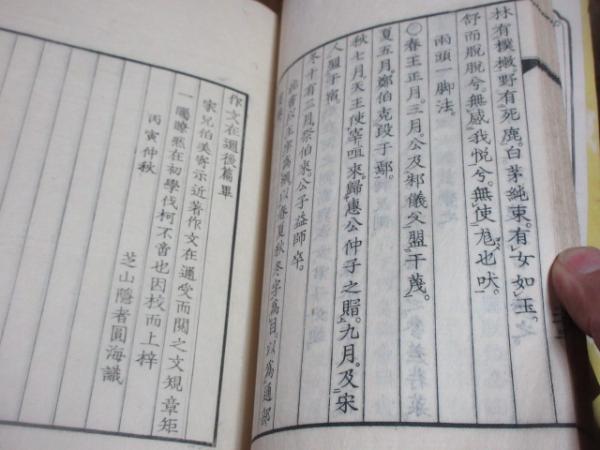 林有樸樕野有死鹿。白茅純束。有女如玉。
舒而脫脫兮。無感我帨兮。無使尨也吠。
兩頭一脚法。
〇春王正月。三月。公及邾儀父盟于蔑。
夏五月。鄭伯克段于鄢。
秋七月。天王使宰咺來。歸惠公仲子之賵。九月。及宋
人盟于宿。
冬十有二月。祭伯來。公子益師卒。
春夏秋冬字為目以為通部
作文在邇後篇畢
家兄伯美寄示近著作文在邇受而閱之文規章矩
一矚瞭然在初學伐柯不啻也因校而上梓
丙寅仲秋
芝山隱者圓海識